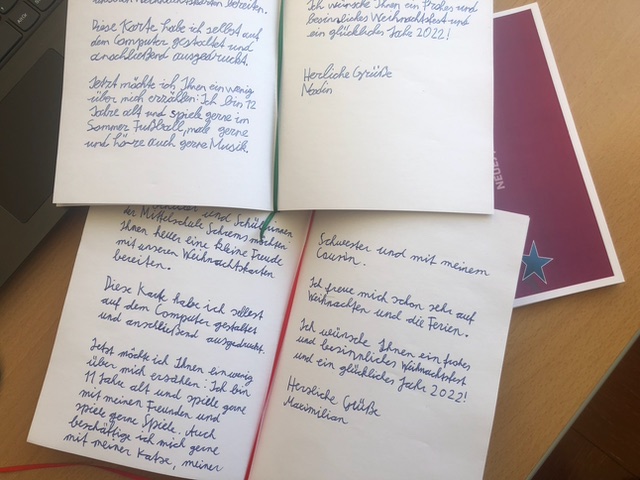 Diese Karte habe ich selbst auf
dem Computer gestaltet und
anschließend ausgedruckt.
Jetzt möchte ich Ihnen ein wenig
über mich erzählen: Ich bin 12
Jahre alt und spiele gerne im
Sommer Fußball, male gerne
und höre auch gerne Musik.
Ich wünsche Ihnen ein frohes und
besinnliches Weihnachtsfest und
ein glückliches Jahr 2022!
Herzliche Grüße
und Schülerinnen
der Mittelschule Schrems möchten
Ihnen heuer eine kleine Freude
mit unseren Weihnachtskarten
bereiten.
Diese Karte habe ich selbst
auf dem Computer gestaltet
und anschließend ausgedruckt.
Jetzt möchte ich Ihnen ein wenig
über mich erzählen: Ich bin
11 Jahre alt und spiele gerne
mit meinen Freunden und
spiele gerne Spiele. Auch
beschäftige ich mich gerne
mit meiner Katze, meiner
Schwester und mit meinem
Cousin.
Ich freue mich schon sehr auf
Weihnachten und die Ferien.
Ich wünsche Ihnen ein frohes
und besinnliches Weihnachtsfest
und ein glückliches Jahr 2022!
Herzliche Grüße
Maximilian